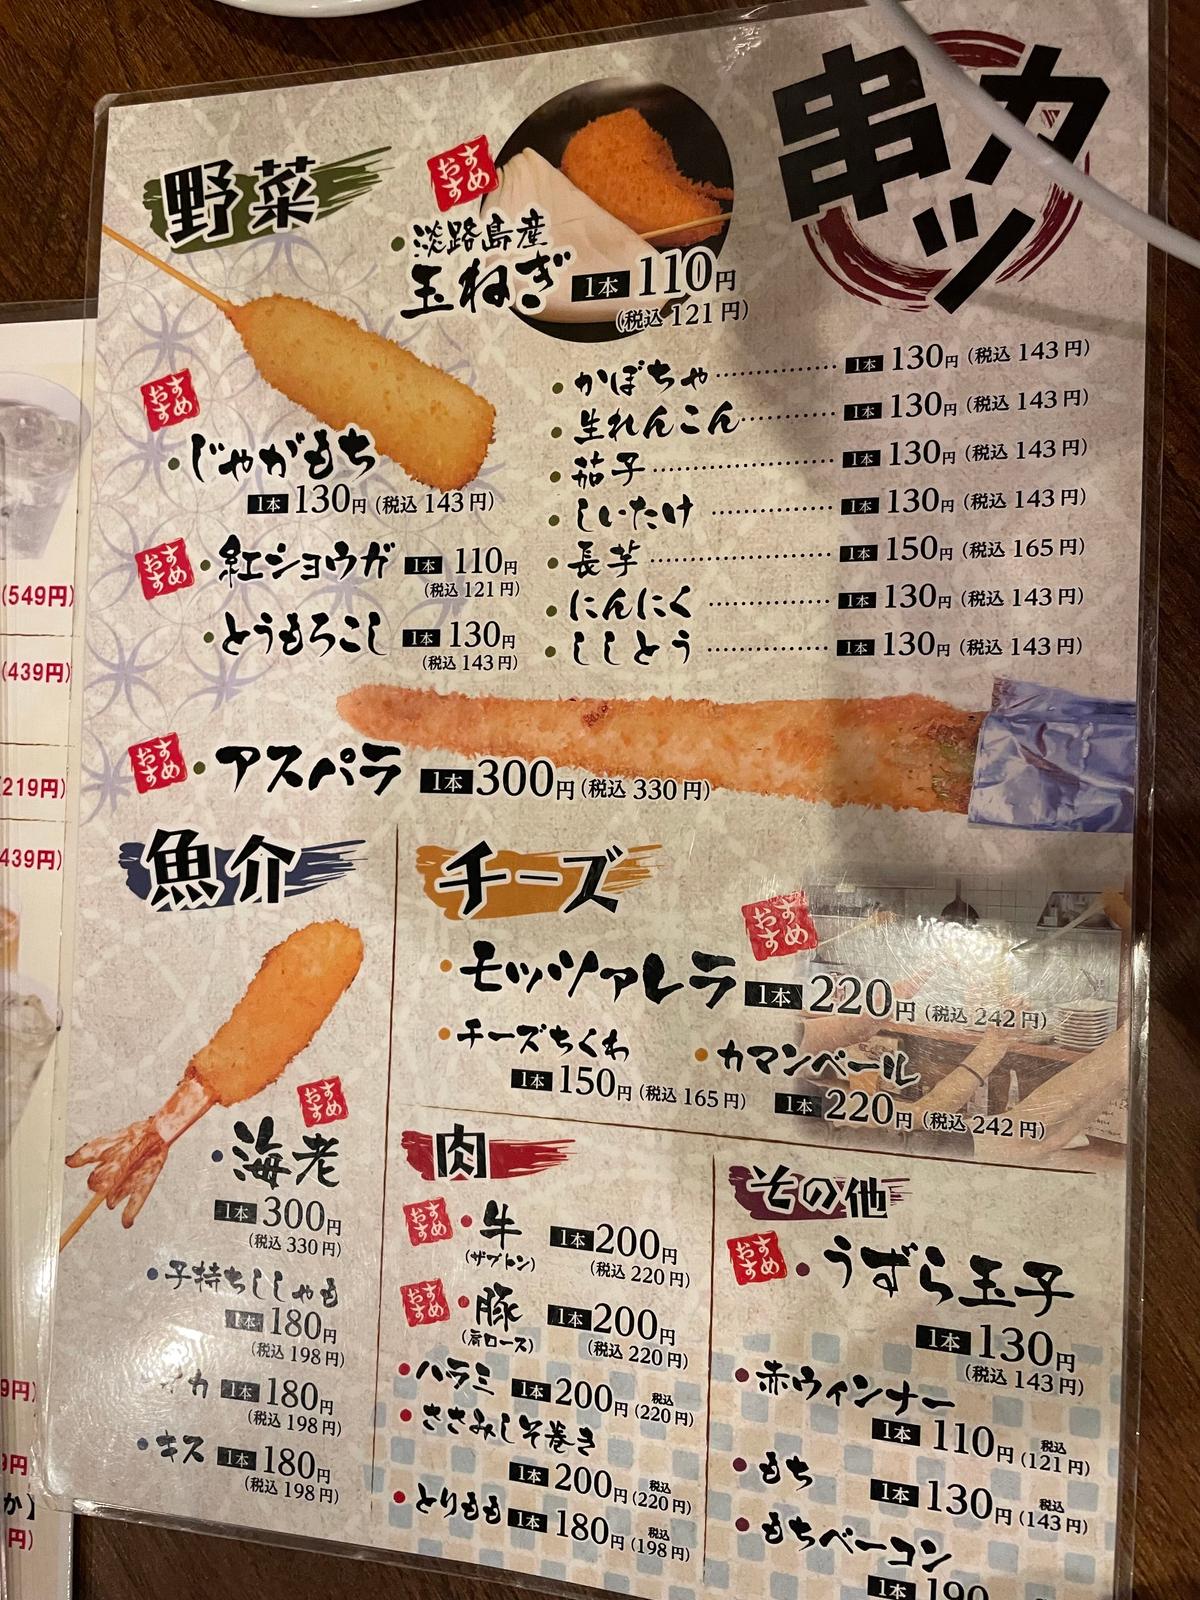 串カツ
野菜
おすすめ
淡路島産
玉ねぎ 1本 110円
(税込 121円)
おすすめ
じゃがもち
1本 130円 (税込 143円)
おすすめ
紅ショウガ 1本 110円
(税込 121円)
とうもろこし 1本 130円
(税込 143円)
かぼちゃ 1本 130円 (税込 143円)
生れんこん 1本 130円 (税込 143円)
茄子 1本 130円 (税込 143円)
しいたけ 1本 130円 (税込 143円)
長芋 1本 150円 (税込 165円)
にんにく 1本 130円 (税込 143円)
ししとう 1本 130円 (税込 143円)
おすすめ
アスパラ 1本 300円 (税込 330円)
魚介
おすすめ
海老
1本 300円
(税込 330円)
子持ちししゃも
1本 180円
(税込 198円)
カ 1本 180円
(税込 198円)
キス 1本 180円
(税込 198円)
チーズ
おすすめ
モッツァレラ 1本 220円 (税込 242円)
チーズちくわ
1本 150円 (税込 165円)
カマンベール
1本 220円 (税込 242円)
肉
おすすめ
牛 1本 200円
(ザブトン) (税込 220円)
おすすめ
豚 1本 200円
(肩ロース) (税込 220円)
ハラミ 1本 200円 税込(220円)
ささみしそ巻き
1本 200円 税込(220円)
とりもも 1本 180円 税込(198円)
その他
おすすめ
うずら玉子
1本 130円
(税込 143円)
赤ウィンナー
1本 110円 税込(121円)
もち 1本 130円 税込(143円)
もちベーコン
1本 190
(549円)
(439円)
219円)
439円)
9円)
9円
か】
円)